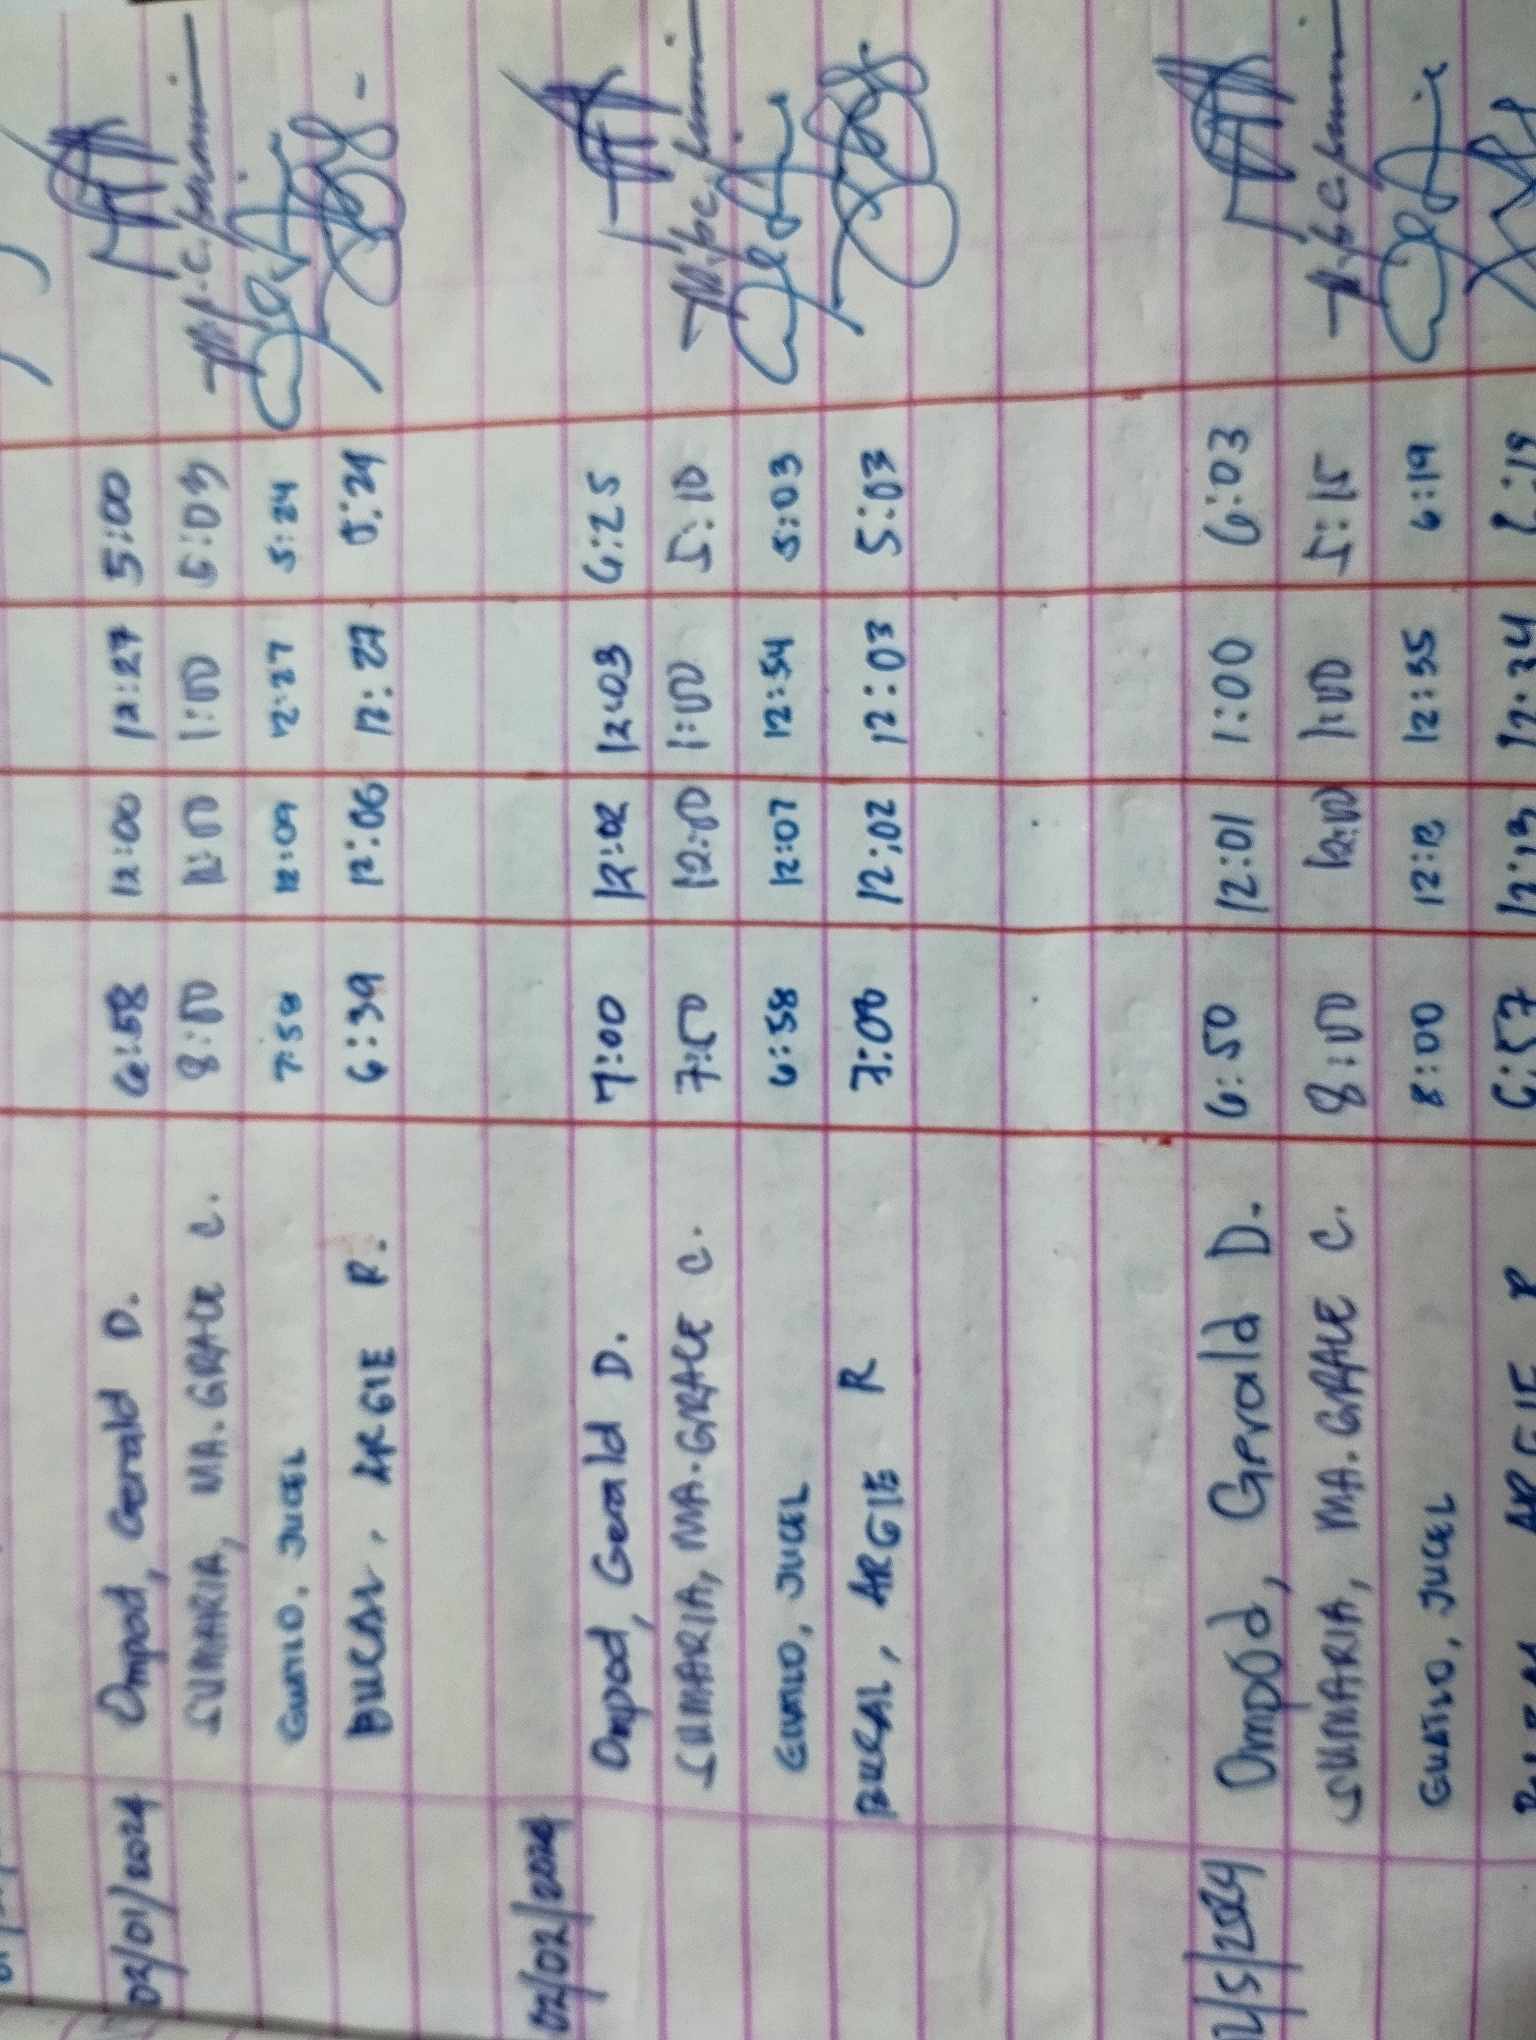 02/01/2024 Ompod, Gerald D. 6:58 12:00 12:27 5:00
SUMARIA, MA. GRACE C. 8:00 12:00 1:00 5:03
GUATNO, JUCEL 7:58 12:09 12:27 5:24
BUCAL, ARGIE R. 6:39 12:06 12:27 5:24
02/02/2024
Ompod, Gerald D. 7:00 12:02 12:03 6:25
SUMARIA, MA. GRACE C. 7:00 12:00 1:00 5:10
GUATNO, JUCEL 6:58 12:07 12:54 5:03
BUCAL, ARGIE R 7:08 12:02 12:03 5:03
2/5/2024 Ompod, Gerald D. 6:50 12:01 1:00 6:03
SUMARIA, MA. GRACE C. 8:00 12:00 1:00 5:15
GUATNO, JUCEL 8:00 12:12 12:35 6:19
ARGIE R 6:57 12:13 12:34 6:19